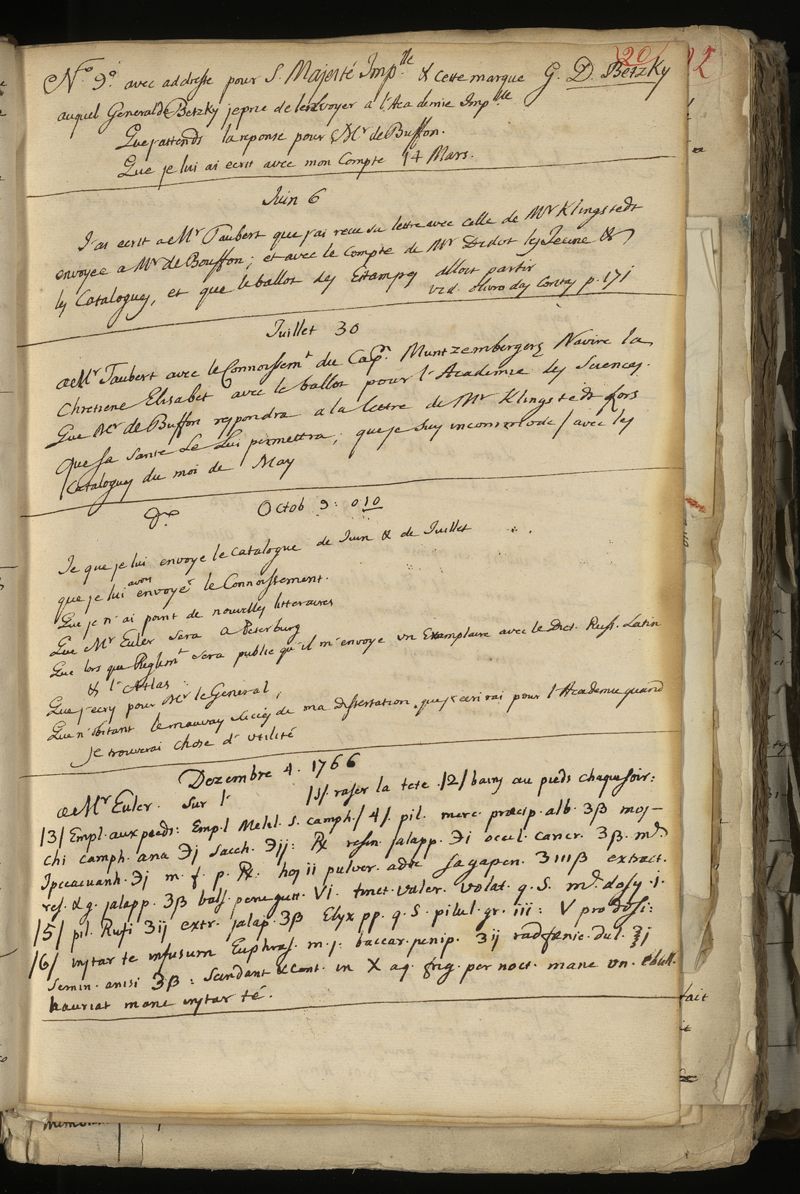 20 92
N.o 9.o avec addresse pour S. Majesté Imp.lle & cette marque G. D. Betzky
auquel General de Betzky je prie de l'envoyer a l'Academie Imp.lle
Que j'attends la reponse pour Mr de Buffon.
Que je lui ai ecrit avec mon Compte 14 Mars.
Juin 6
J'ai ecrit a Mr Taubert que j'ai recu sa lettre avec celle de Mr Klingstedt
envoyee a Mr de Bouffon; et avec le Compte de Mr Didot les Jeune &
les Catalogues, et que le ballot des Estampes alloit partir
vid. p. 171
Juillet 30
a Mr Taubert avec le Connoissemt du Capn Muntzembergers Navire la
Chretiene Elisabet avec le ballot pour l'Academie des Sciences.
Que Mr de Buffon respondra a la lettre de Mr Klingstedt lors
que sa sante le lui permettra; que je suis incommodé / avec les
Catalogues du moi de May
Octob 9: 010
Do
Je que je lui envoye le Catalogue de Juin & de Juillet
que je lui avois envoyer le Connoissement.
Que je n'ai point de nouvelles litteraires
Que Mr Euler sera a Peterburg
Que lors que Reglemt sera publie qu'il m'envoye un Examplaire avec le Dict. Russ. Latin
& l'Atlas
Que j'ecry pour Mr le General,
Que n'obstant le mauvay succes de ma dissertation, que j'ecrirai pour l'Academie quand
je trouverai chose d'utilité
Dezembre 4. 1766
a Mr Euler. Sur l' /1/ raser la tete /2/ bains au pieds chaque soir:
/3/ Empl. aux pieds: Empl Melil. s. camph. /4/ pil. merc. praecip. alb. ʒβ mos-
chi camph. ana ℈j sacch. ℈jj: ℞ resin jalapp. ℈i ocul. cancr. ʒβ. md.
Ipecacuanh. ℈j m. f. p. ℞. hor ii pulver. adde sagapen. ʒiiiβ extract.
res. & g. jalapp. ʒβ bals. peru gutt. VI. tinct. valer. volat. q. S. md. dosis j.
/5/ pil. Rufi ʒij extr. jalap. ʒβ Elyx pp. q. S. pilul. gr. iii: V pro dosi:
/6/ instar te infusum Euphras. m. j. baccar. junip. ʒij rad foenic. dul. ℥j
Semin. anisi ʒβ: Scindant & cont. in X aq. frig. per noct. mane un. ebull.
hauriat mane instar té.